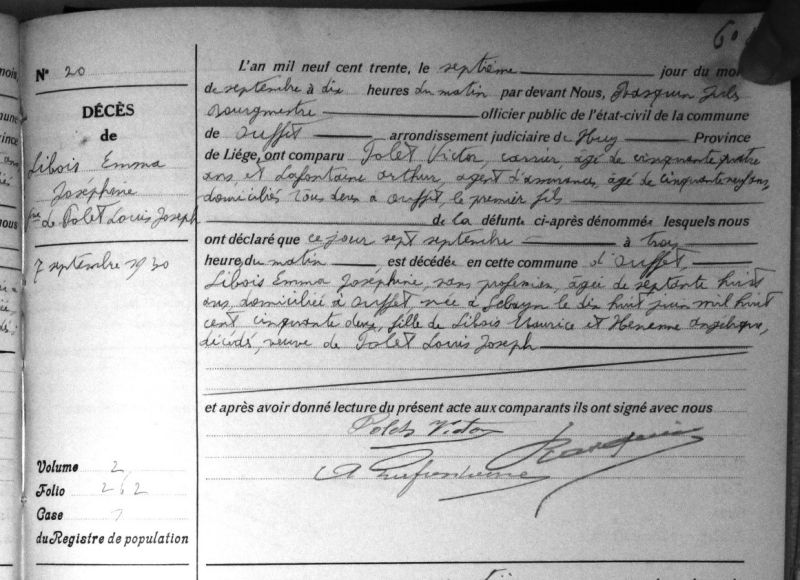 60
N° 20
DÉCÈS
de
Libois Emma
Joséphine
de Polet Louis Joseph
7 septembre 1930
Volume 2
Folio 262
Case
du Registre de population
L'an mil neuf cent trente, le septième jour du mois
de septembre à dix heures du matin par devant Nous, Jules
Bourgmestre officier public de l'état-civil de la commune
de Ouffet arrondissement judiciaire de Huy Province
de Liége, ont comparu Polet Victor, carrier âgé de cinquante quatre
ans, et Lafontaine Arthur, agent d'assurances, âgé de cinquante neuf ans,
domiciliés tous deux à Ouffet, le premier fils
de la défunte ci-après dénommée lesquels nous
ont déclaré que ce jour sept septembre à trois
heures du matin est décédée en cette commune d'Ouffet,
Libois Emma Joséphine, sans profession, âgée de septante huit
ans, domiciliée à Ouffet née à le dix huit juin mil huit
cent cinquante deux, fille de Libois Maurice et Angélique,
décédés, veuve de Polet Louis Joseph
et après avoir donné lecture du présent acte aux comparants ils ont signé avec nous
Polet Victor
A Lafontaine